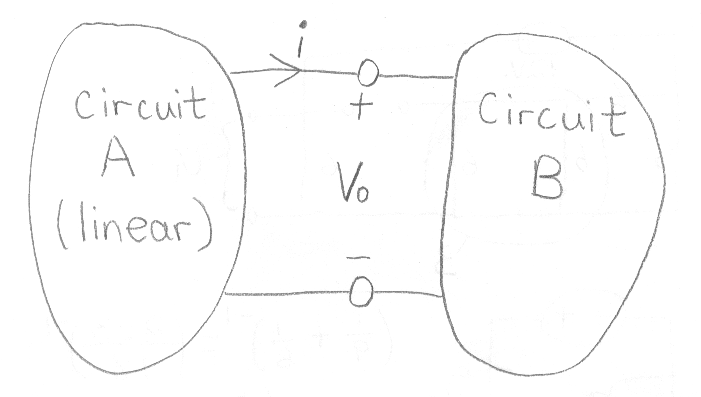 i
Circuit
A
(linear)
+
Vo
−
Circuit
B